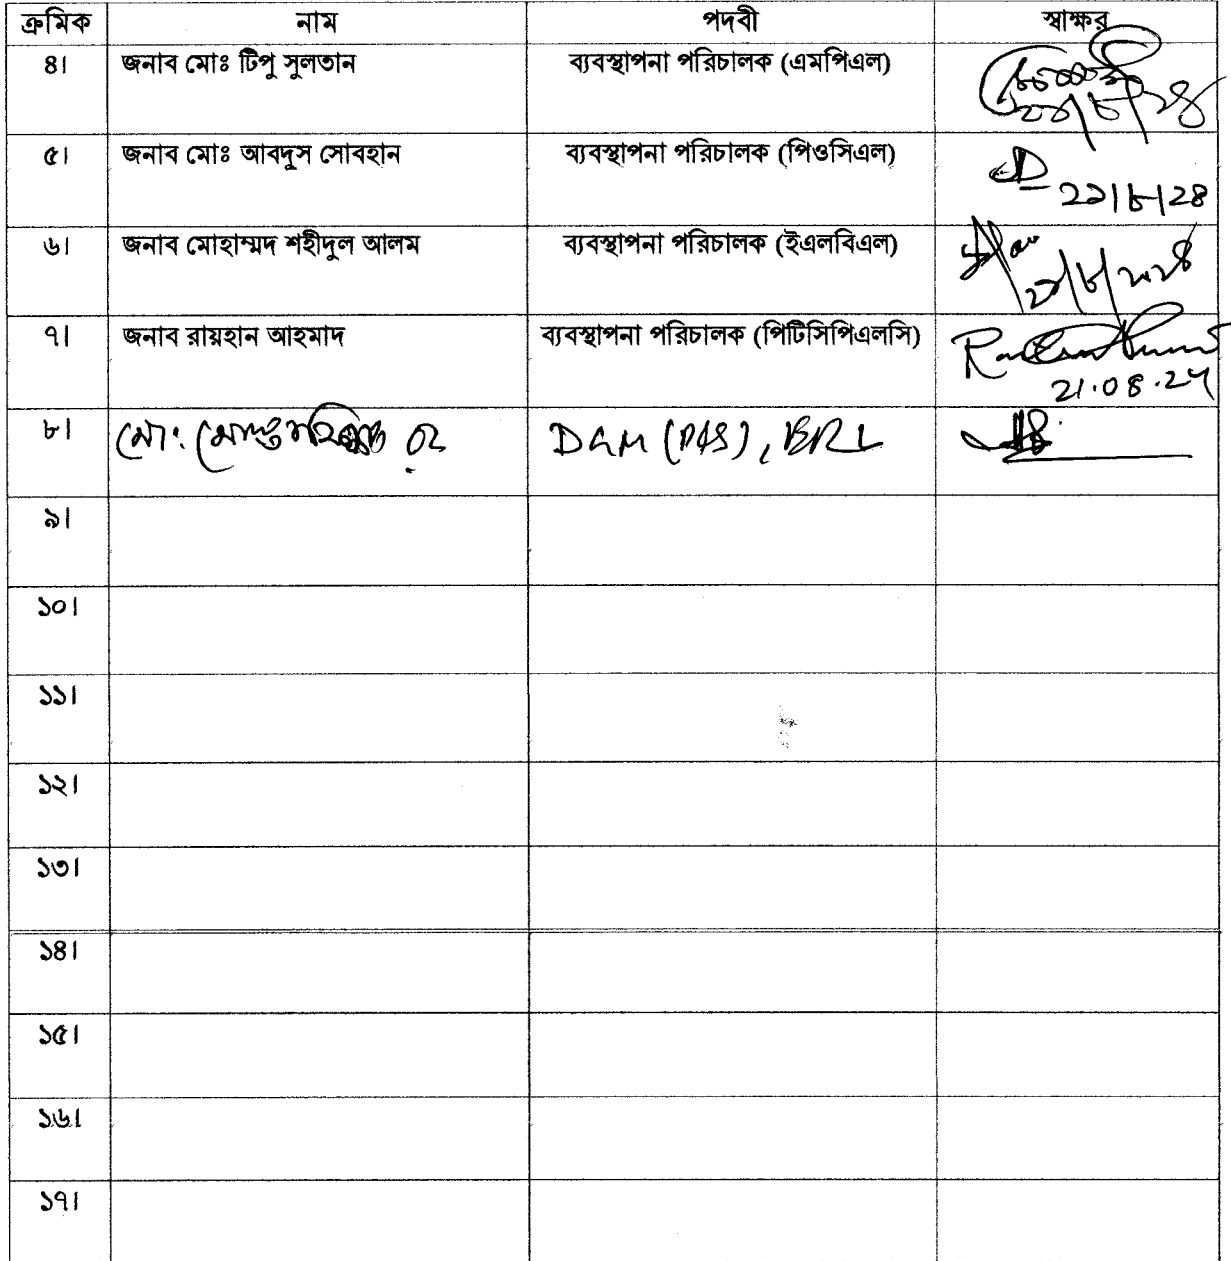 ক্রমিক নাম পদবী স্বাক্ষর
৪। জনাব মোঃ টিপু সুলতান ব্যবস্থাপনা পরিচালক (এমপিএল)
২১/৮/২৪
৫। জনাব মোঃ আবদুস সোবহান ব্যবস্থাপনা পরিচালক (পিওসিএল)
২১/৮/২৪
৬। জনাব মোহাম্মদ শহীদুল আলম ব্যবস্থাপনা পরিচালক (ইএলবিএল)
২১/৮/২০২৪
৭। জনাব রায়হান আহমাদ ব্যবস্থাপনা পরিচালক (পিটিসিপিএলসি)
21.08.24
৮। মোঃ DGM
৯।
১০।
১১।
১২।
১৩।
১৪।
১৫।
১৬।
১৭।